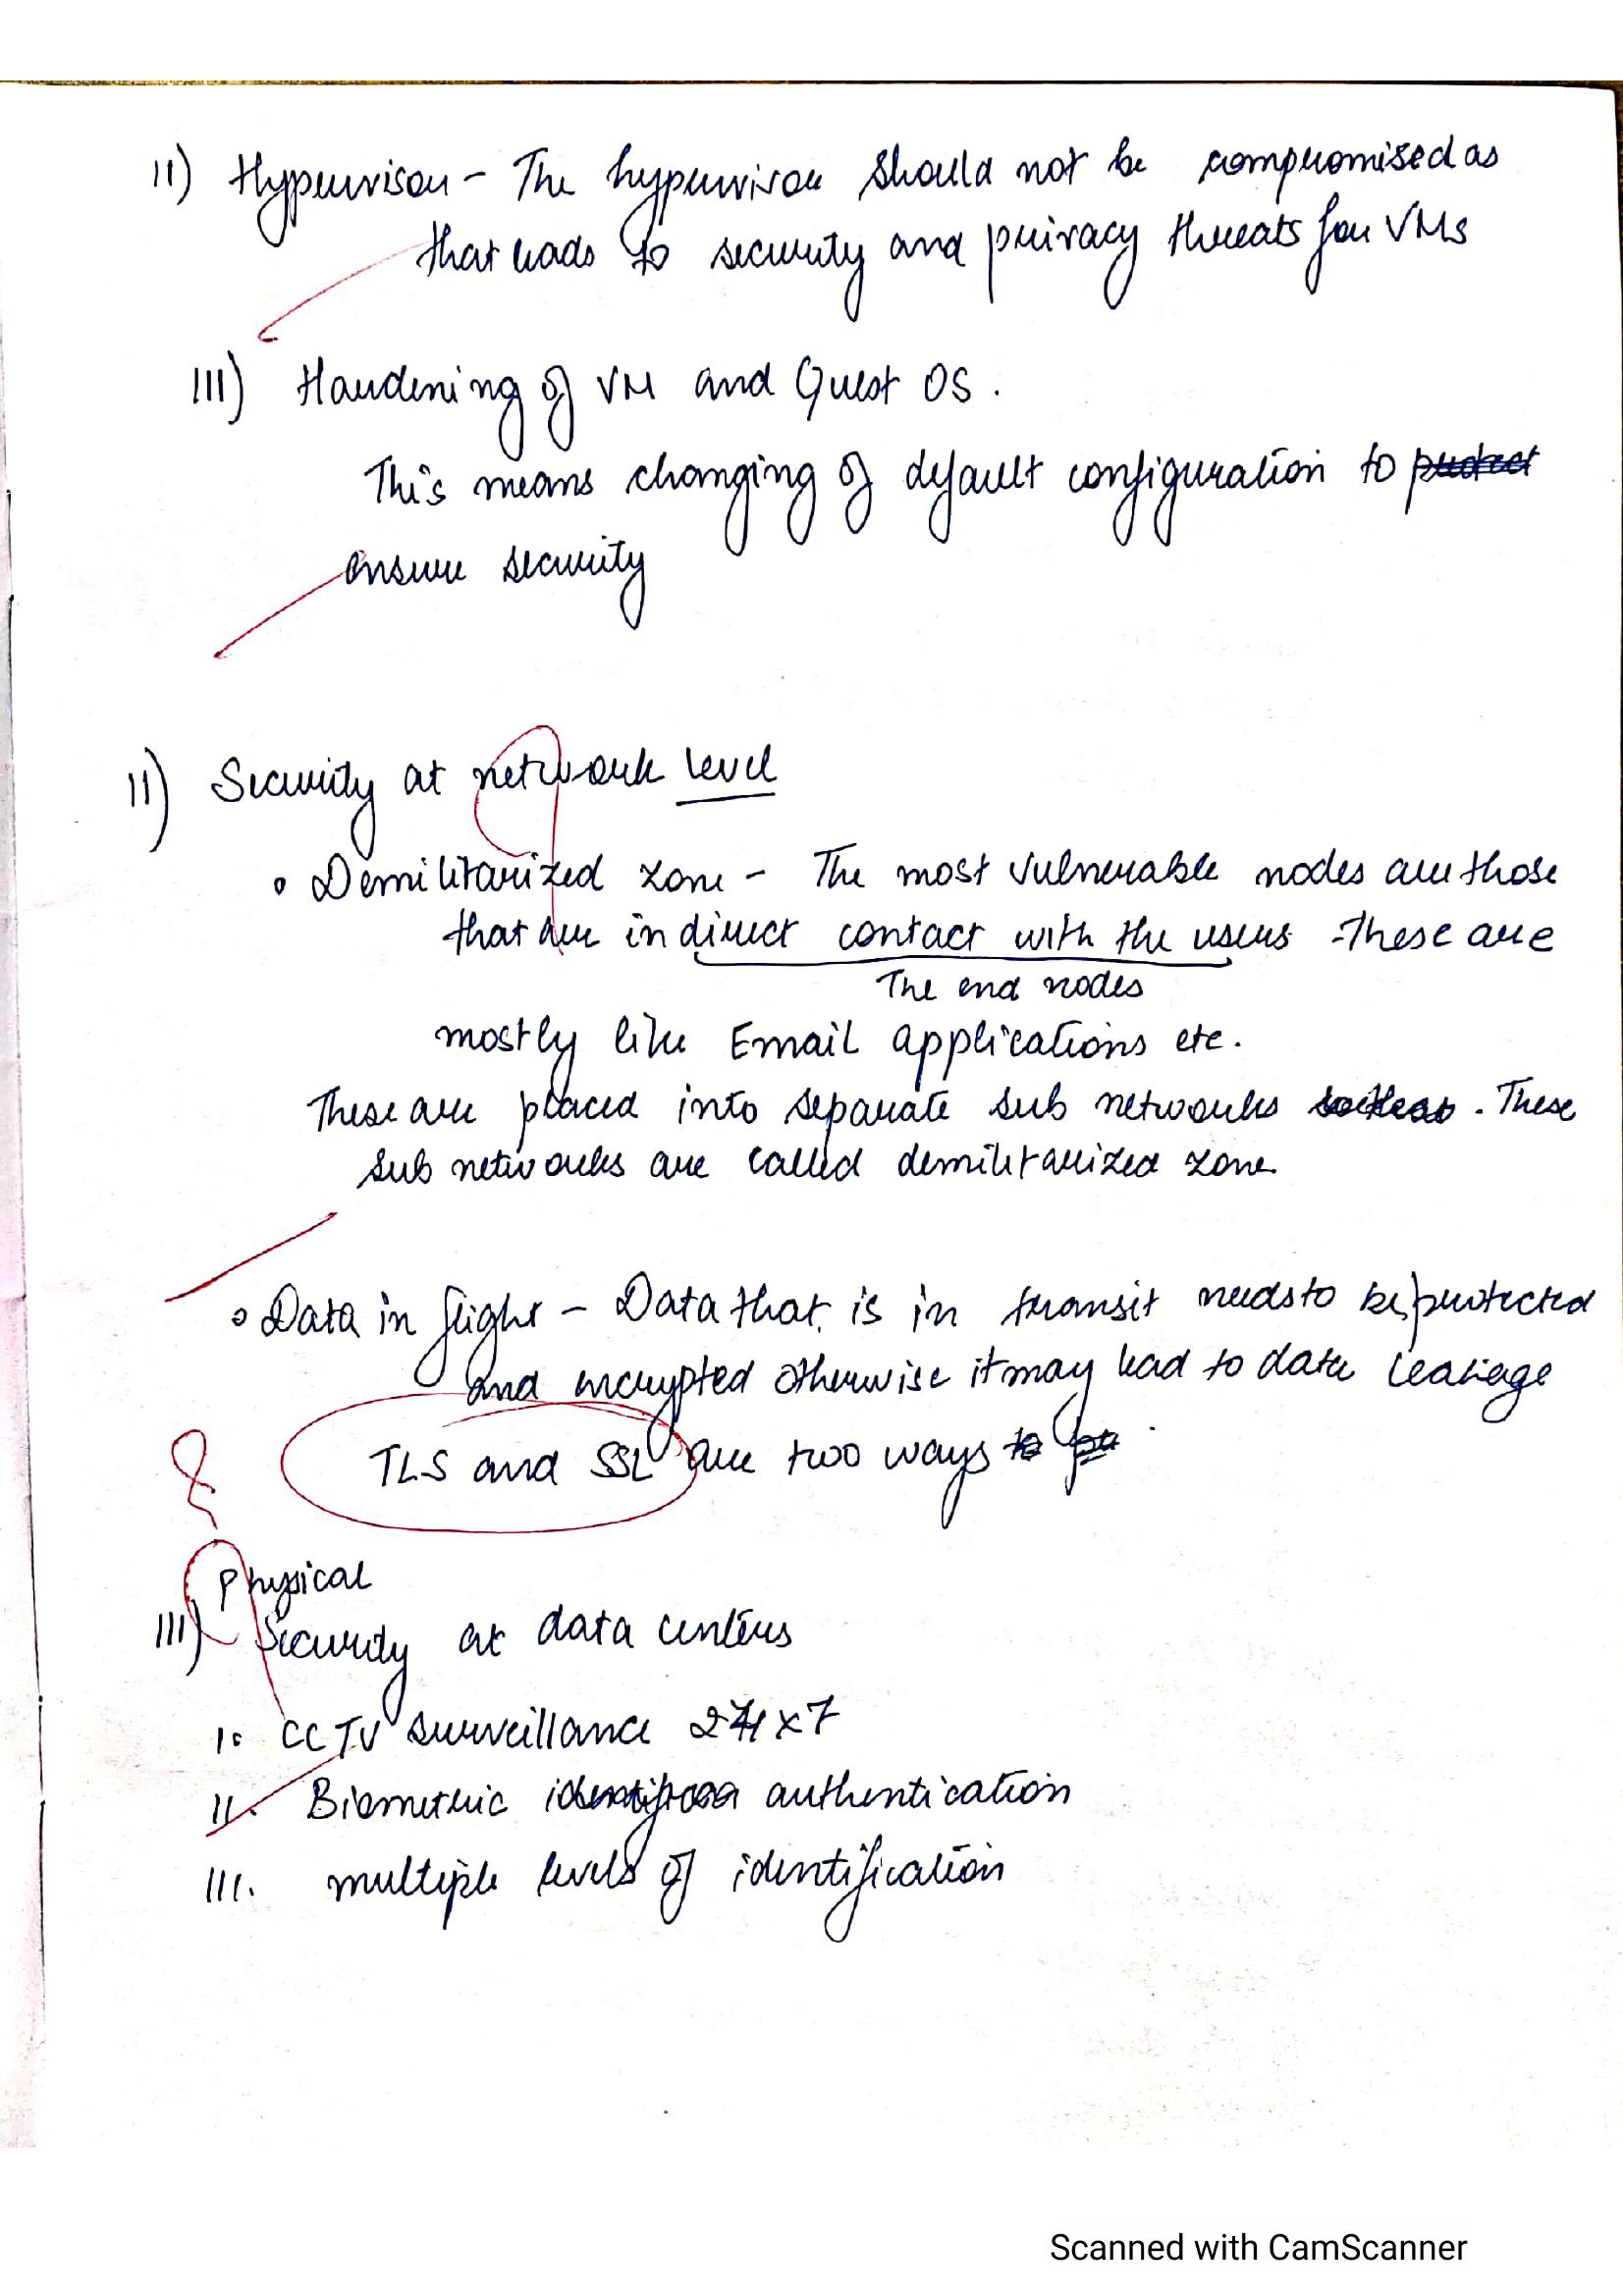 II) Hypervisor - The hypervisor should not be compromised as
that leads to security and privacy threats for VMs
III) Hardening of VM and Guest OS.
This means changing of default configuration to protect
ensure security
II) Security at network level
• Demilitarized zone - The most vulnerable nodes are those
that are in direct contact with the users. These are
The end nodes
mostly like Email applications etc.
These are placed into separate sub networks . These
sub networks are called demilitarized zone
• Data in flight - Data that is in transit needs to be protected
and encrypted otherwise it may lead to data leakage
TLS and SSL are two ways to
Physical
III) Security at data centers
I. CCTV surveillance 24x7
II. Biometric authentication
III. multiple levels of identification
Scanned with CamScanner